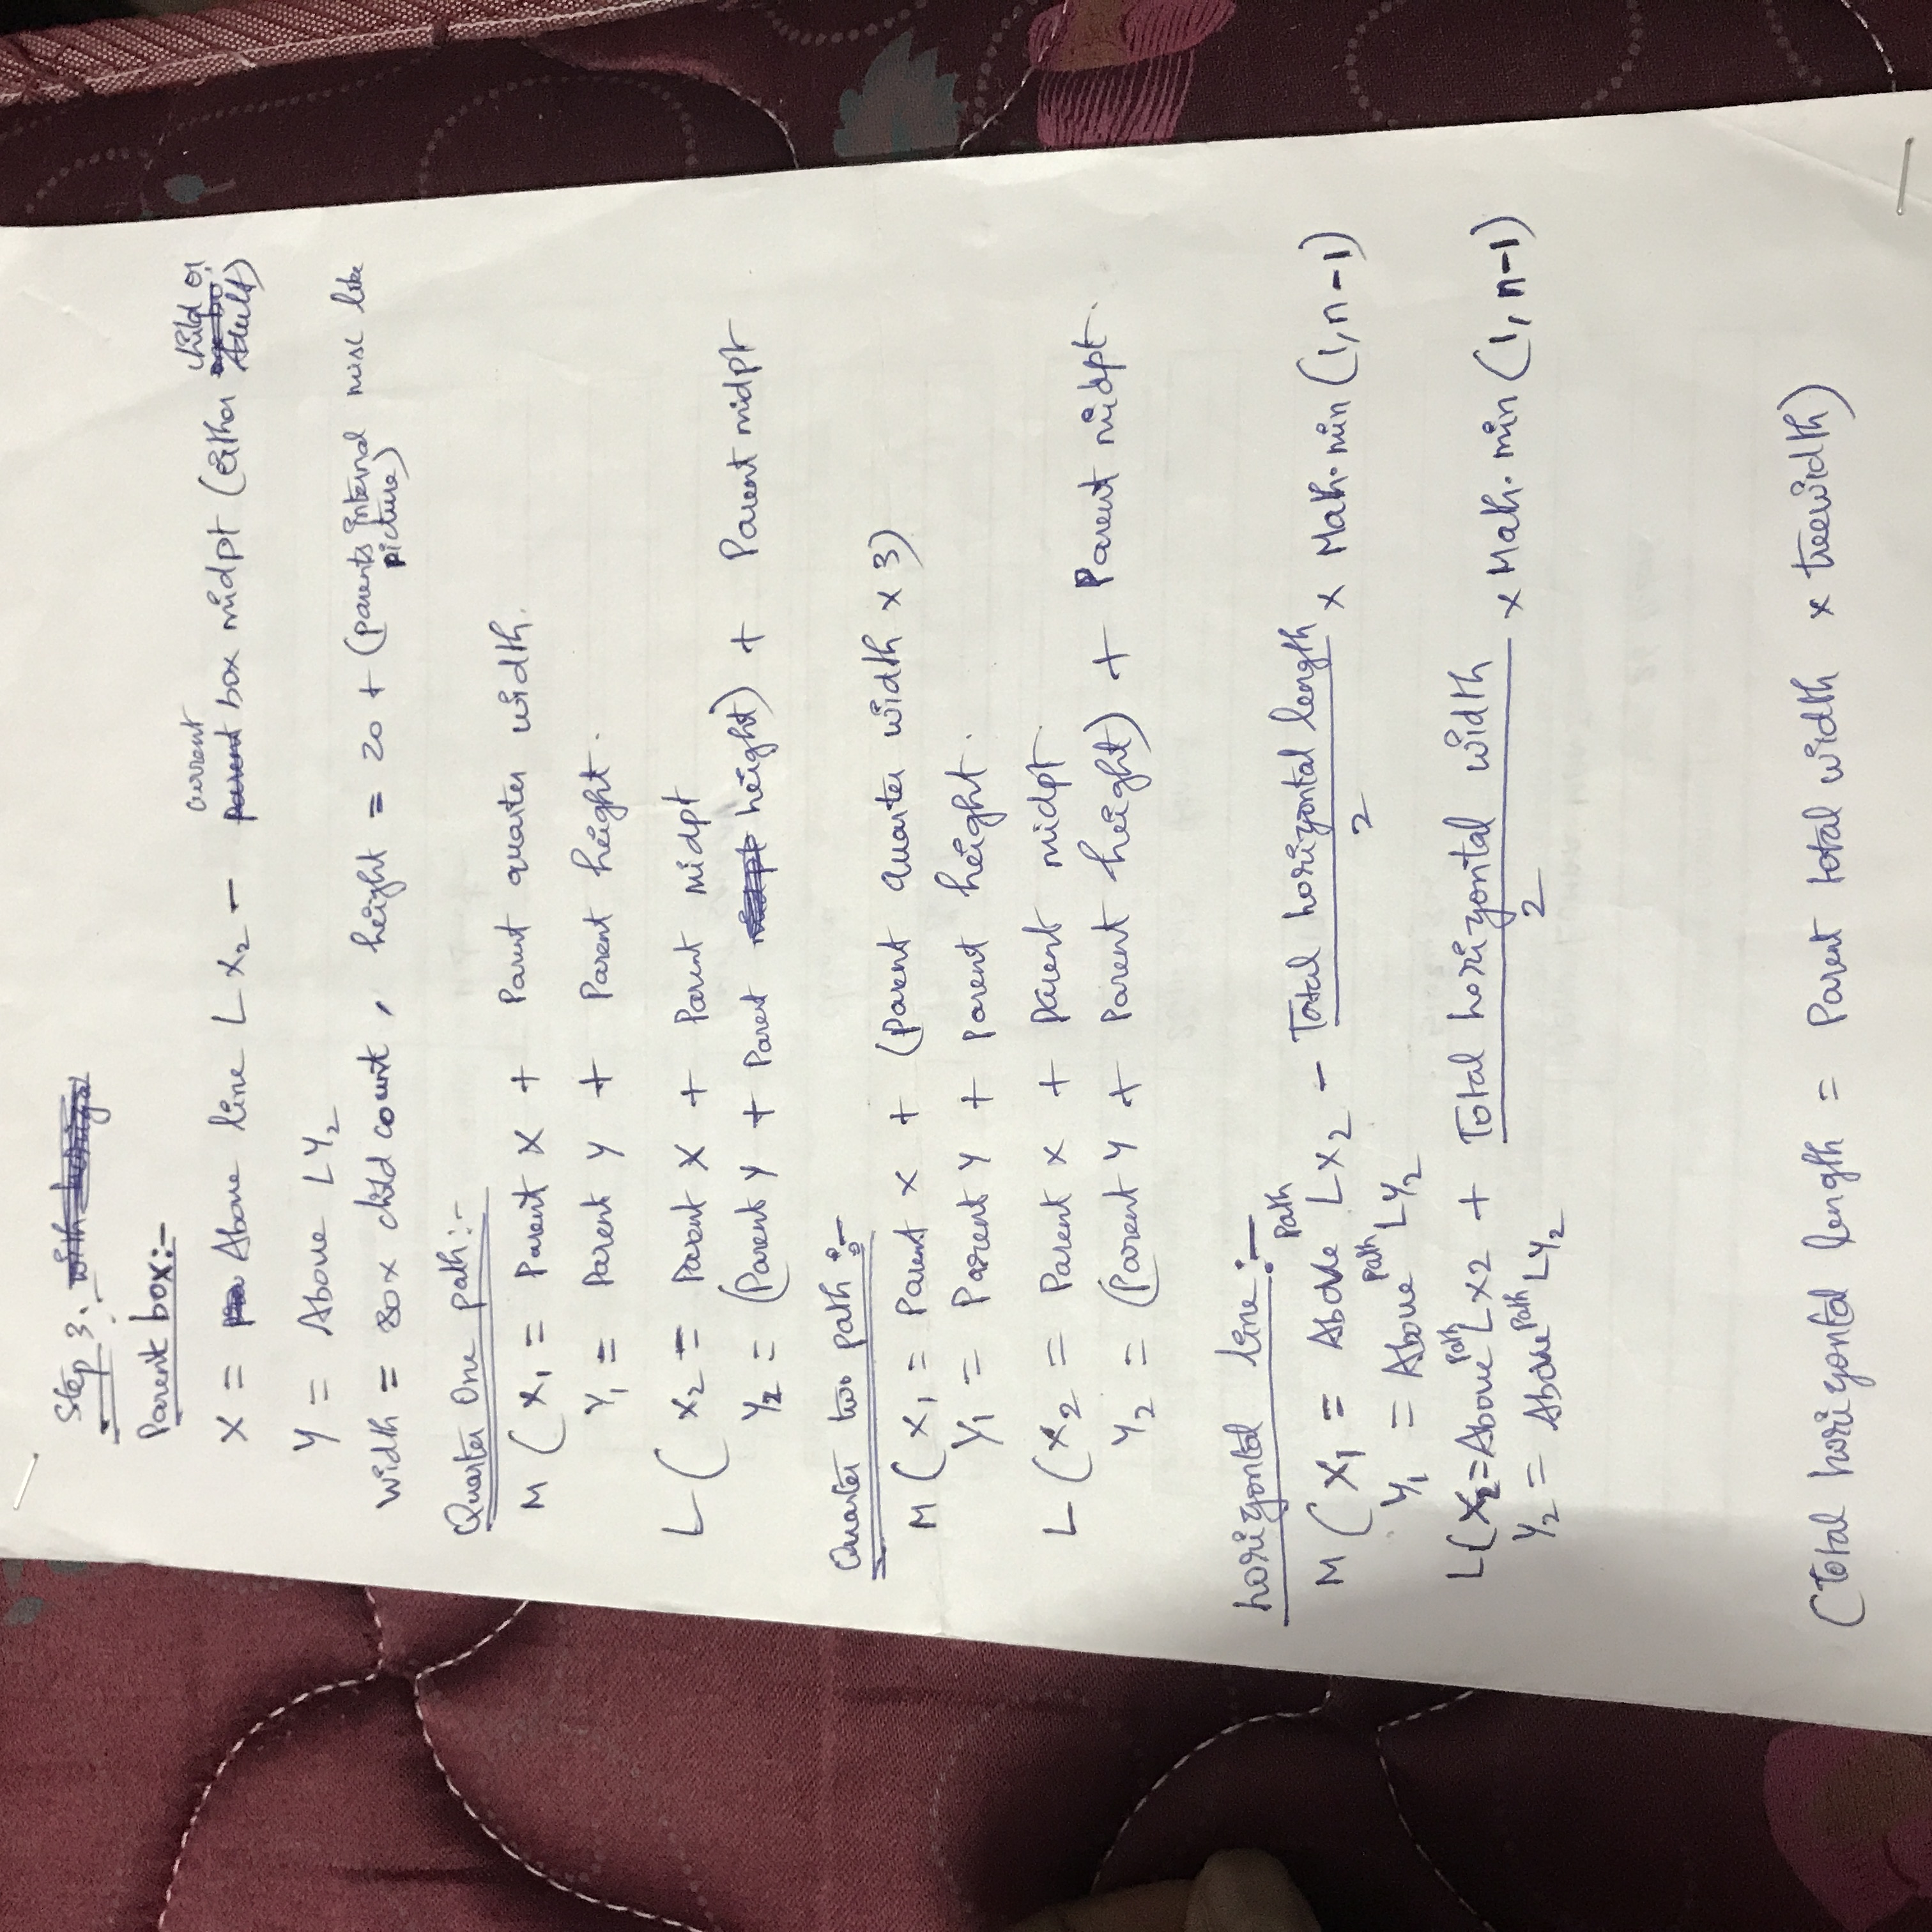 Step 3.
Parent box:-
X = Above line L X2 - current box midpt (either child or Adult)
Y = Above LY2
Width = 80 x child count, height = 20 + (parents internal misc like picture)
Quarter One path:-
M ( X1 = Parent X + Parent quarter width.
Y1 = Parent Y + Parent height.
L ( X2 = Parent X + Parent midpt
Y2 = (Parent Y + Parent height) + Parent midpt
Quarter two path:-
M ( X1 = Parent X + (Parent quarter width x 3)
Y1 = Parent Y + parent height.
L ( X2 = Parent X + Parent midpt.
Y2 = (Parent Y + Parent height) + Parent midpt.
horizontal line:-
M ( X1 = Above path LX2 - Total horizontal length / 2 x Math.min (1, n-1)
Y1 = Above path LY2
L( X2 = Above path LX2 + Total horizontal width / 2 x Math.min (1, n-1)
Y2 = Above path LY2
(Total horizontal length = Parent total width x treewidth)